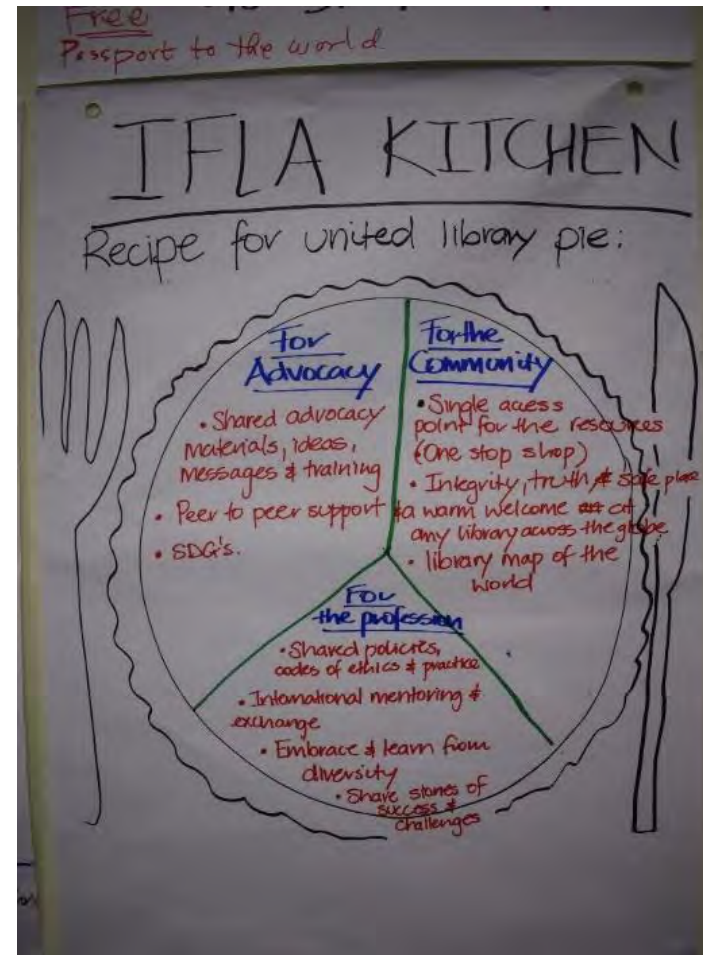 Free
Passport to the world
IFLA KITCHEN
Recipe for united library pie:
For
Advocacy
• Shared advocacy
materials, ideas,
messages & training
• Peer to peer support
• SDG's.
For the
Community
• Single acess
point for the resources
(One stop shop)
• Integrity, truth, & safe place
& a warm welcome at
any library across the globe
• library map of the
world
For
the profession
• Shared policies,
codes of ethics & practice
• International mentoring &
exchange
• Embrace & learn from
diversity
• Share stories of
success &
challenges